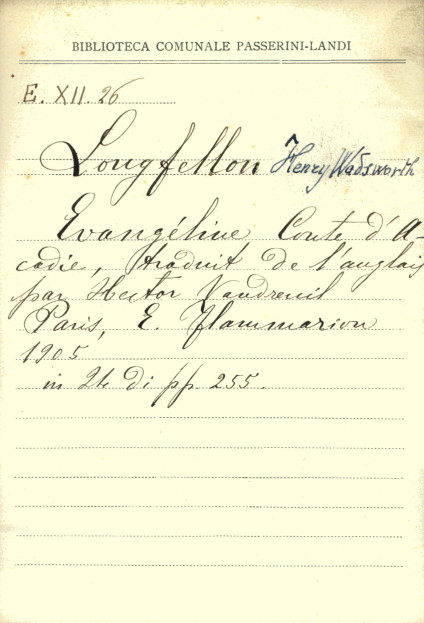 BIBLIOTECA COMUNALE PASSERINI-LANDI
E. XII. 26
Longfellow Henry Wadsworth
Evangéline Conte d'A-
cadie, traduit de l'anglais
par Hector Vaudreuil
Paris, E. Flammarion
1905
in 24 di pp. 255.